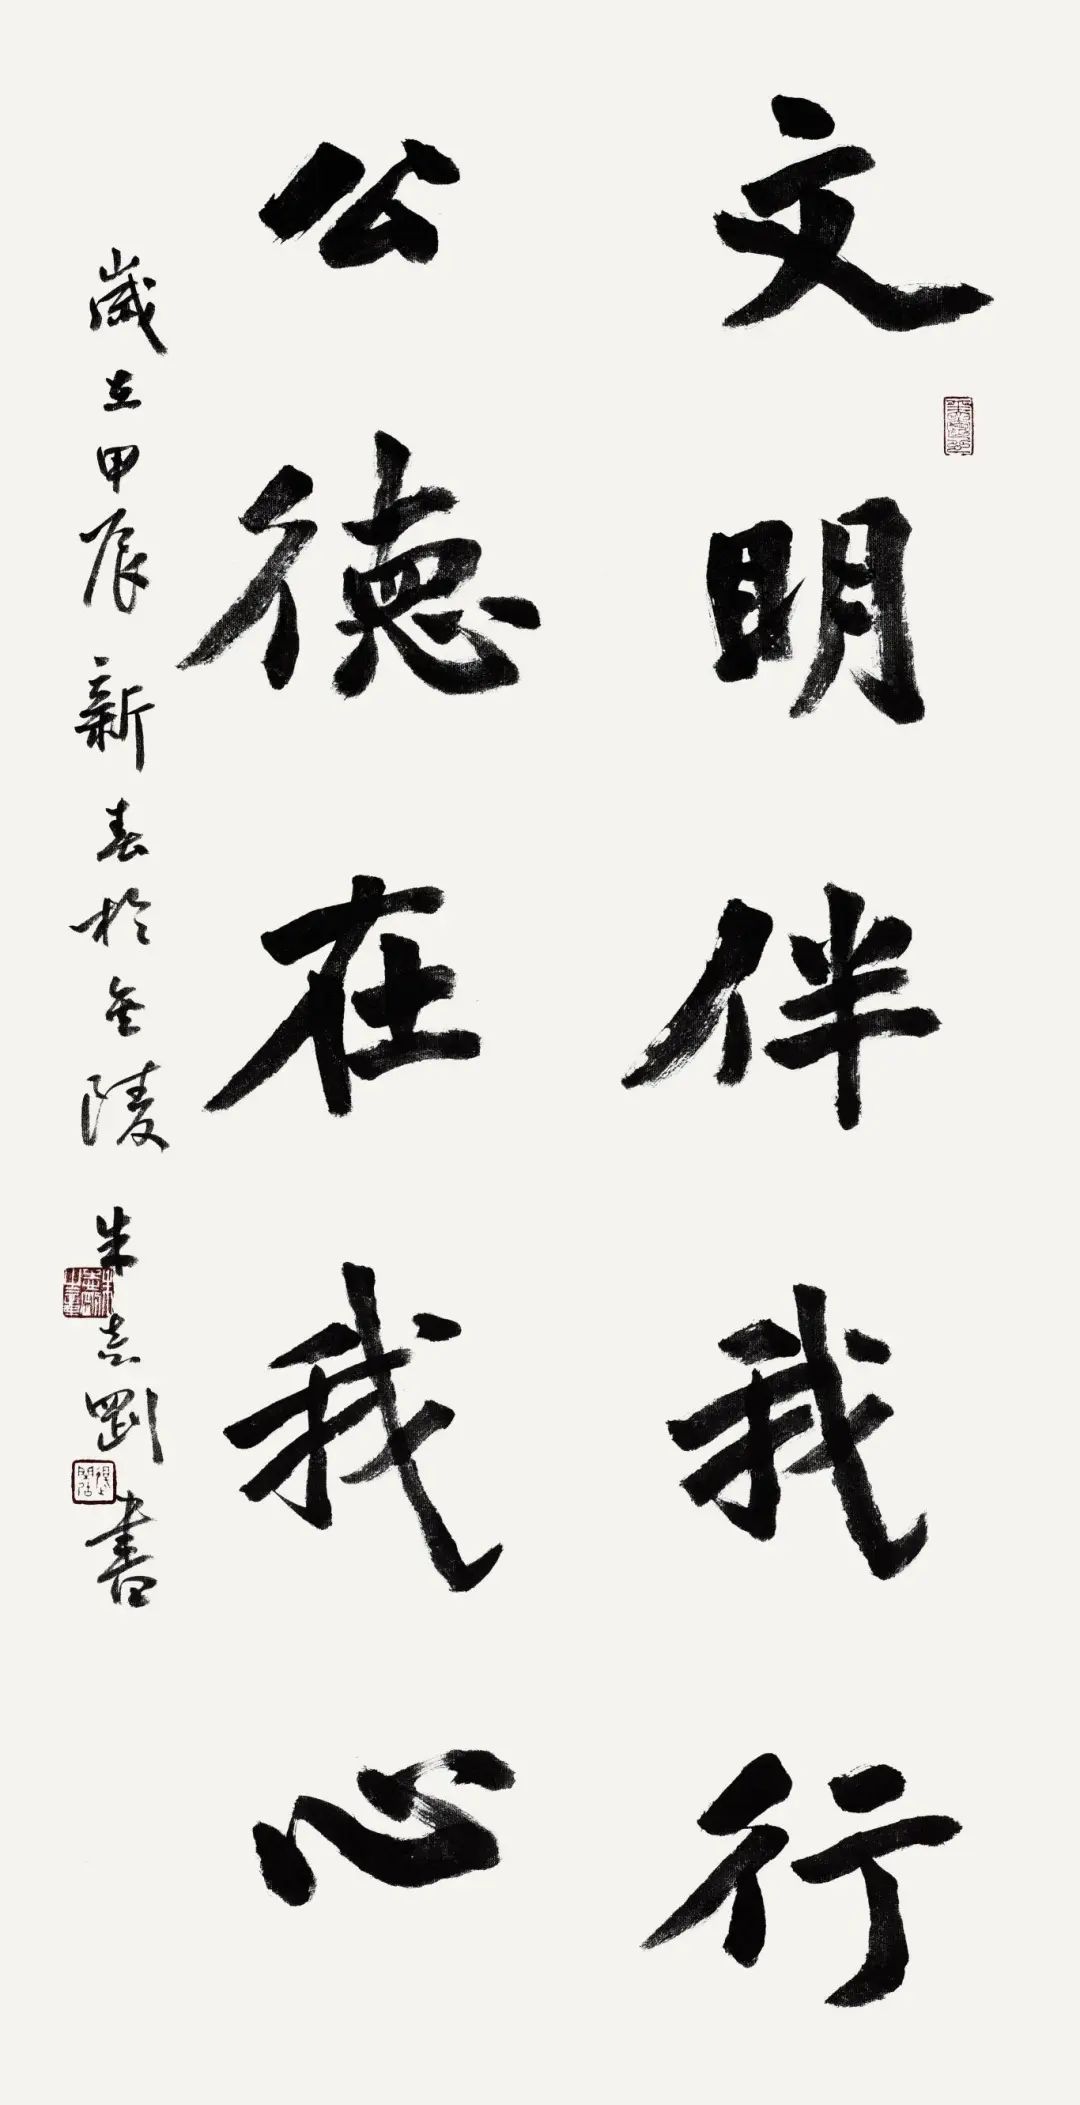 文明伴我行
公德在我心
歲在甲辰新春於金陵 朱志剛書